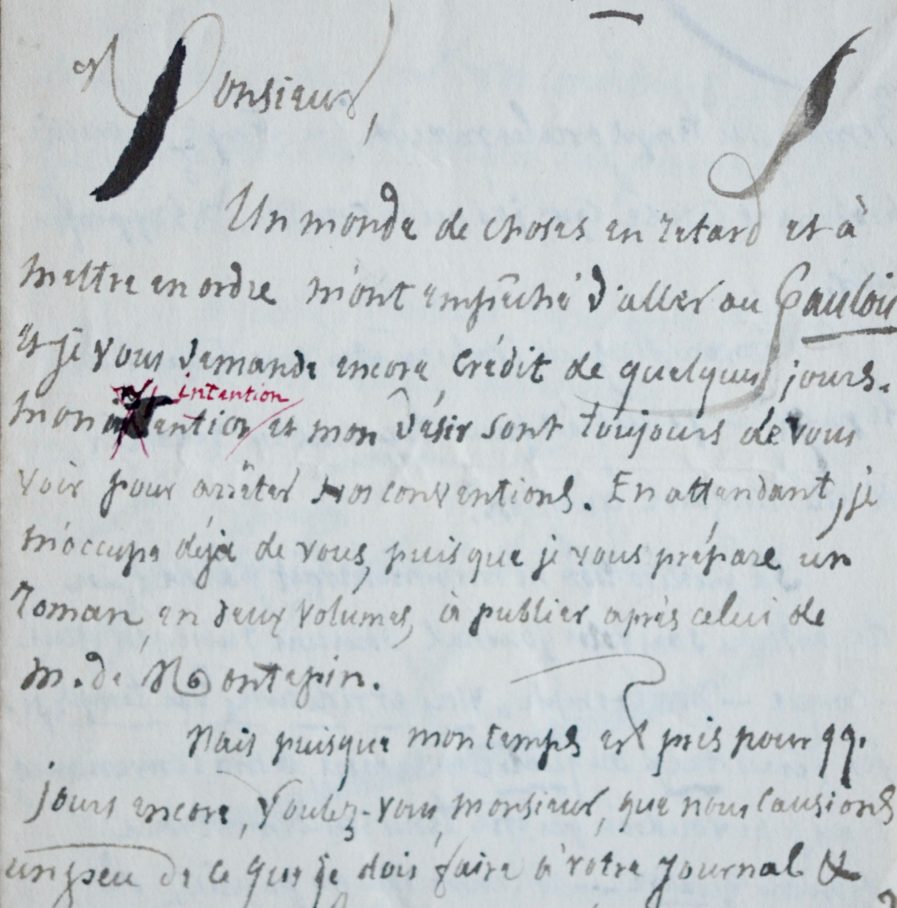 Monsieur,
Un monde de choses en retard et à
mettre en ordre m'ont empêché d'aller au Gaulois
et je vous demande encore crédit de quelques jours.
intention
mon intention et mon désir sont toujours de vous
voir pour arrêter nos conventions. En attendant, je
m'occupe déjà de vous, puisque je vous prépare un
roman en deux volumes, à publier après celui de
M. de Montépin.
Mais puisque mon temps est pris pour qq.
jours encore, voulez-vous monsieur, que nous causions
un peu de ce que je dois faire à votre journal &